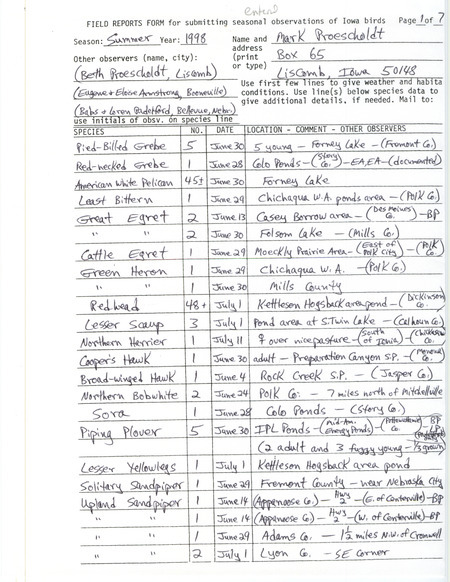 entered
FIELD REPORTS FORM for submitting seasonal observations of Iowa birds Page 1 of 7
Season: Summer Year: 1998 Name and Mark Proescholdt
address
Other observers (name, city): (print Box 65
(Beth Proescholdt, Liscomb) or type) Liscomb, Iowa 50148
(Eugene + Eloise Armstrong, Booneville) Use first few lines to give weather and habitat
conditions. Use line(s) below species data to
(Babs + Loren Padelford, Bellevue, Nebr.) give additional details, if needed. Mail to:
use initials of obsv. on species line
SPECIES NO. DATE LOCATION - COMMENT - OTHER OBSERVERS
Pied-Billed Grebe 5 June 30 5 young - Forney Lake - (Fremont Co.)
Red-necked Grebe 1 June 28 Colo Ponds - (Story Co.) - EA, EA - (documented)
American White Pelican 45± June 30 Forney Lake
Least Bittern 1 June 29 Chichaqua W.A. ponds area - (Polk Co.)
Great Egret 2 June 13 Casey Borrow area - (Des Moines Co.) - BP
" " 2 June 30 Folsom Lake - (Mills Co.)
Cattle Egret 1 June 29 Moeckly Prairie Area - (East of Polk City) - (Polk Co.)
Green Heron 1 June 29 Chichaqua W.A. - (Polk Co.)
" " 1 June 30 Mills County
Redhead 48+ July 1 Kettleson Hogsback area pond - (Dickinson Co.)
Lesser Scaup 3 July 1 Pond area at S. Twin Lake - (Calhoun Co.)
Northern Harrier 1 July 11 ♀ over nice pasture - (South of Iowa) - Co.)
Cooper's Hawk 1 June 30 adult - Preparation Canyon S.P. - (Monona Co.)
Broad-winged Hawk 1 June 4 Rock Creek S.P. - (Jasper Co.)
Northern Bobwhite 2 June 24 Polk Co. - 7 miles north of Mitchellville
Sora 1 June 28 Colo Ponds - (Story Co.)
Piping Plover 5 June 30 IPL Ponds - (Mid-Am. Energy Ponds) - (Pottawattamie Co.) - BP LP
(2 adult and 3 fuzzy young - 1/3 grown)
Lesser Yellowlegs 1 July 1 Kettleson Hogsback area pond
Solitary Sandpiper 1 June 29 Fremont County - near Nebraska City
Upland Sandpiper 1 June 14 (Appanoose Co.) - Hwy 2 - (E. of Centerville) - BP
" " 1 June 14 (Appanoose Co.) - Hwy 2 - (W. of Centerville) - BP
" " 1 June 29 Adams Co. - 1½ miles N.W. of Cromwell
" " 2 July 1 Lyon Co. - SE Corner